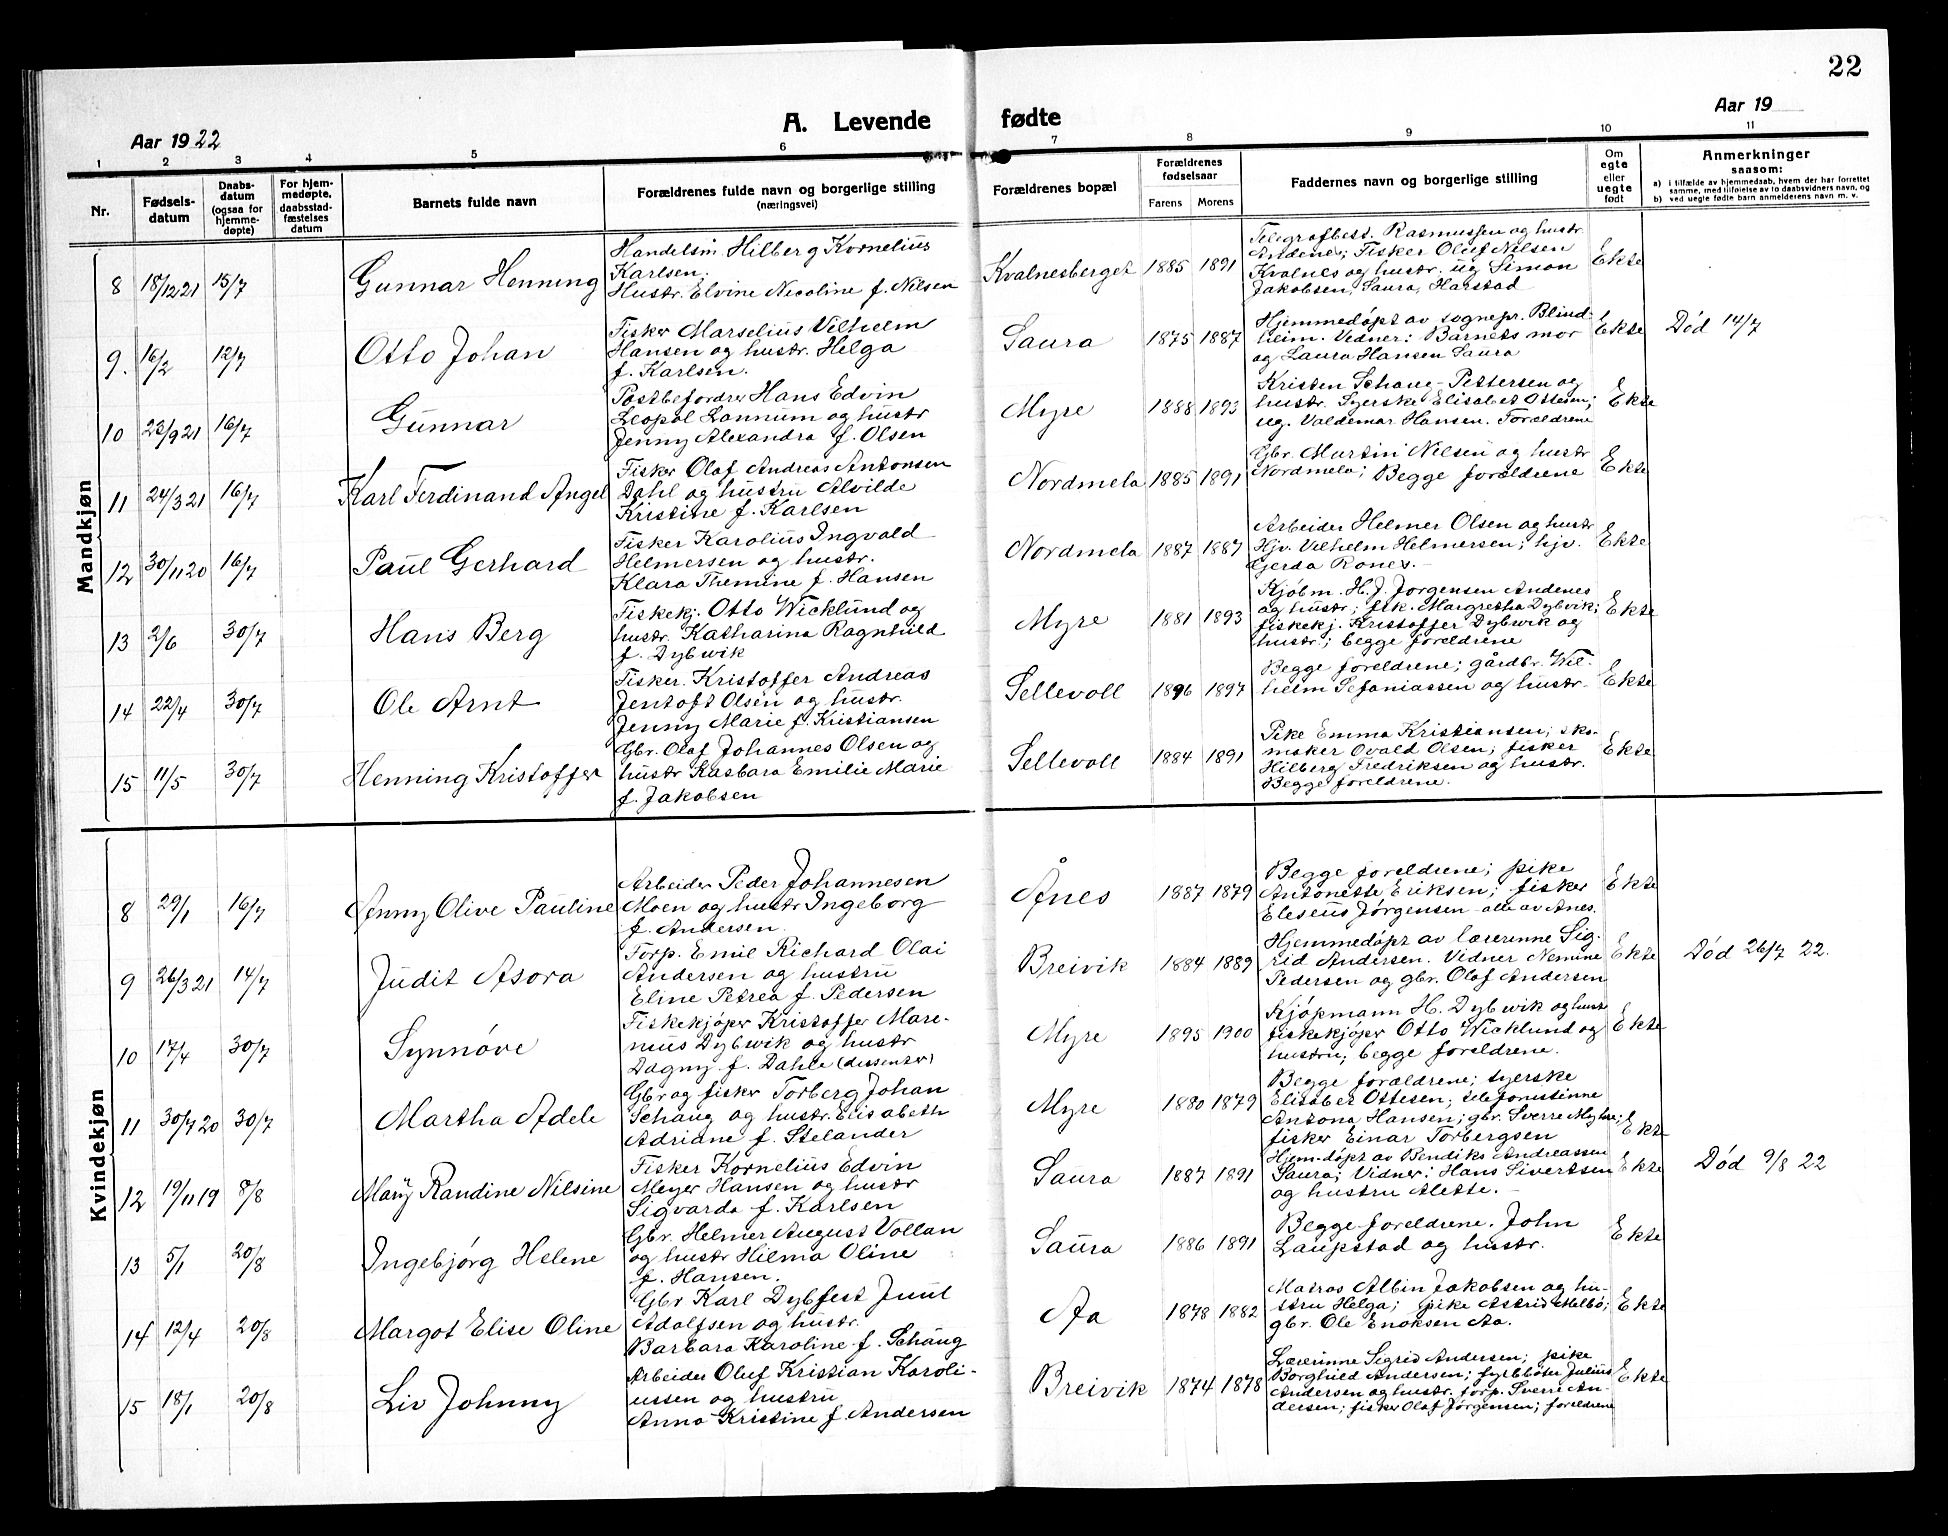 22
A. Levende fødte
Aar 1922
Aar 19
1 2 3 4 5 6 7 8 9 10 11
Nr.
Fødsels-
datum
Daabs-
datum
(ogsaa for
hjemme-
døpte)
For hjem-
medøpte,
daabsstad-
fæstelses
datum
Barnets fulde navn
Forældrenes fulde navn og borgerlige stilling
(næringsvei)
Forældrenes bopæl
Forældrenes
fødselsaar
Farens Morens
Faddernes navn og borgerlige stilling
Om
egte
eller
uegte
født
Anmerkninger
saasom:
a) i tilfælde av hjemmedaab, hvem der har forrettet
samme, med tilføielse av to daabsvidners navn, og
b) ved uegte fødte barn anmelderens navn m. v.
Mandkjøn
8 18/12 21 15/7 Gunnar Henning
Handelsm. Hilberg Kornelius
Karlsen;
Hustr. Elvine Nicoline f. Nilsen
Kvalnesberget 1885 1891
Telegrafbest. Rasmussen og hustr.
Andenes; Fisker Oluf Nilsen
Kvalnes og hustr. ug Simon
Jakobsen, Saura, Harstad
Ekte
9. 16/2 12/7 Otto Johan
Fisker Marselius Vilhelm
Hansen og hustr. Helga
f. Karlsen.
Saura 1875 1887
Hjemmedøpt av sognepr. Blind-
heim. Vidner: Barnets mor
og Laura Hansen Saura
Ekte Død 14/7
10 23/9 21 16/7 Gunnar
Postbefordrer Hans Edvin
Leopol Lonnum og hustr
Jenny Alexandra f. Olsen
Myre 1888 1893
Kristen Schaug-Pettersen og
hustr. Syerske Elisabet Ottesen;
ug. Valdemar Hansen. Foreldrene
Ekte
11 24/3 21 16/7 Karl Ferdinand Angel
Fisker Olaf Andreas Antonsen
Dahl og hustru Alvilde
Kristine f. Karlsen
Nordmela 1885 1891
Gbr. Martin Nilsen og hustr
Nordmela; Begge forældrene
Ekte
12 30/11 20 16/7 Paul Gerhard
Fisker Karolius Ingvald
Helmersen og hustr.
Klara Themine f. Hansen
Nordmela 1887 1887
Arbeider Helmer Olsen og hustr
Hjv. Vilhelm Helmersen; hjv.
Gerda Rones.-
Ekte
13 2/6 30/7 Hans Berg
Fiskekj. Otto Wicklund og
hustr. Katharina Ragnhild
f. Dybwik
Myre 1881 1893
Kjøbm. H. J. Jorgensen Andenes
og hustr; frk. Margretha Dybvik;
fiskekj. Kristoffer Dybwik og
hustr.; begge foreldrene
Ekte
14 22/4 30/7 Ole Arnt
Fisker. Kristoffer Andreas
Jentoft Olsen og hustr.
Jenny Marie f. Kristiansen
Sellevoll 1896 1897
Begge foreldrene; gårdbr. Wil-
helm Sefaniassen og hustr.
Ekte
15 11/5 30/7 Henning Kristoffer
Gbr. Olaf Johannes Olsen og
hustr Kasbara Emilie Marie
f. Jakobsen
Sellevoll 1884 1891
Pike Emma Kristiansen; sko-
maker Ovald Olsen; fisker
Hilberg Fredriksen og hustr.
Begge foreldrene.
Ekte
Kvindekjøn
8 29/1 16/7 Anny Olive Pauline
Arbeider Peder Johannesen
Moen og hustr Ingeborg
f. Andersen.
Ånes 1887 1879
Begge foreldrene; pike
Antonette Eriksen; fisker
Eleseus Jørgensen - alle av Ånes.
Ekte
9 26/3 21 14/7 Judit Asora
Forp. Emil Richard Olai
Andersen og hustru
Eline Petrea f. Pedersen
Breivik 1884 1889
Hjemmedøpt av lærerinne Sig-
rid Andersen. Vidner Nemine
Pedersen og gbr. Olaf Andersen
Ekte Død 26/7 22.
10 17/4 30/7 Synnøve
Fiskekjøper Kristoffer Mare-
nius Dybwik og hustr
Dagny f. Dahle (dissenter)
Myre 1895 1900
Kjøpmann H. Dybwik og hustr
fiskekjøper Otto Wicklund og
hustru; begge foreldrene.
Ekte
11 30/7 20 30/7 Martha Adele
Gbr og fisker Torberg Johan
Schaug og hustr. Elisabeth
Adriane f. Stelander
Myre 1880 1879
Begge forældrene; syerske
Elisabet Ottesen; telefonistinne
Antona Hansen; gbr. Sverre Myhre;
fisker Einar Torbergsen
Ekte
12 19/11 19 8/8 Mary Randine Nilsine
Fisker Kornelius Edvin
Meyer Hansen og hustr
Sigvarda f. Karlsen
Saura 1887 1891
Hjem.døpt av Bendiks Andreassen
Saura; Vidner: Hans Sivertsen
og hustru Alette.-
Ekte Død 9/8 22
13 5/1 20/8 Ingebjørg Helene
Gbr. Helmer August Vollan
og hustr Hilma Oline
f. Hansen.
Saura 1886 1891
Begge foreldrene. John
Laupstad og hustr.
Ekte
14 12/4 20/8 Margot Elise Oline
Gbr Karl Dybfest Juul
Adolfsen og hustr.
Barbara Karoline f. Schaug
Aa 1878 1882
Matros Albin Jakobsen og hu-
stru Helga; pike Astrid Melbö;
gbr. Ole Enoksen Aa.
Ekte
15 18/1 20/8 Liv Johnny
Arbeider Oluf Kristian Karoli-
ussen og hustru
Anna Kristine f. Andersen
Breivik 1874 1878
Lærerinne Sigrid Andersen; pike
Borghild Andersen; fyrbøter Julius
Andersen og hustr. forp. Sverre An-
dersen; fisker Olaf Jørgensen; foreldrene
Ekte